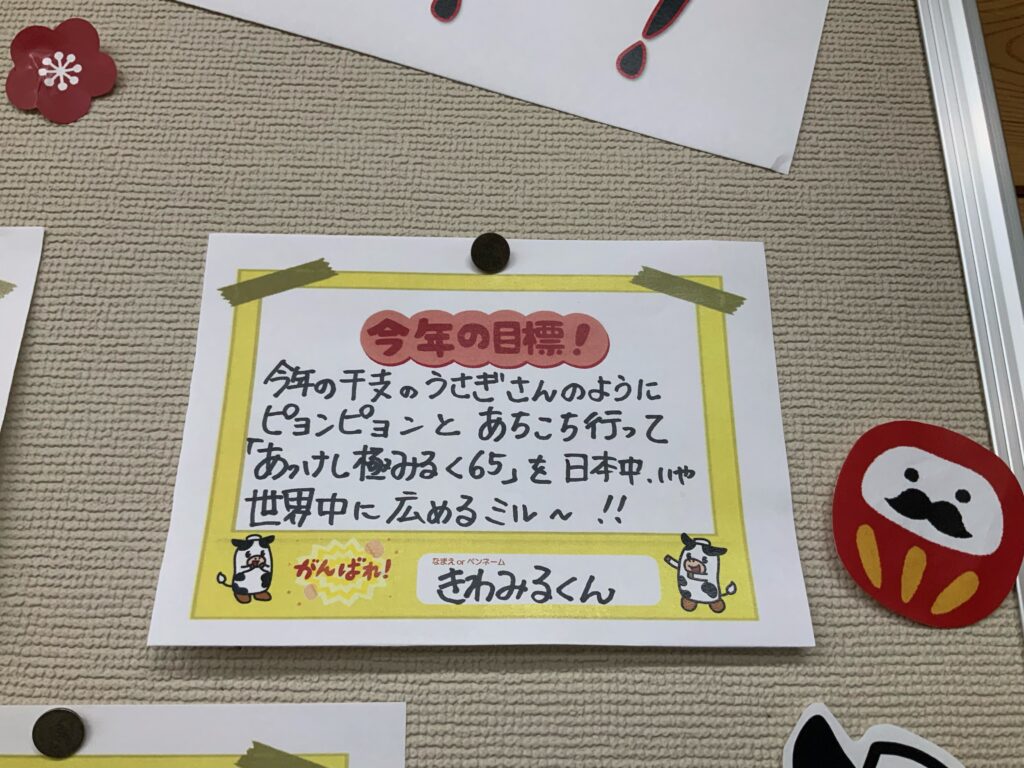 今年の目標!
今年の干支のうさぎさんのように
ピョンピョンと あちこち行って
「あっけし極みるく65」を 日本中、いや
世界中に 広めるミル〜 !!
がんばれ!
なまえ or ペンネーム
きわみるくん